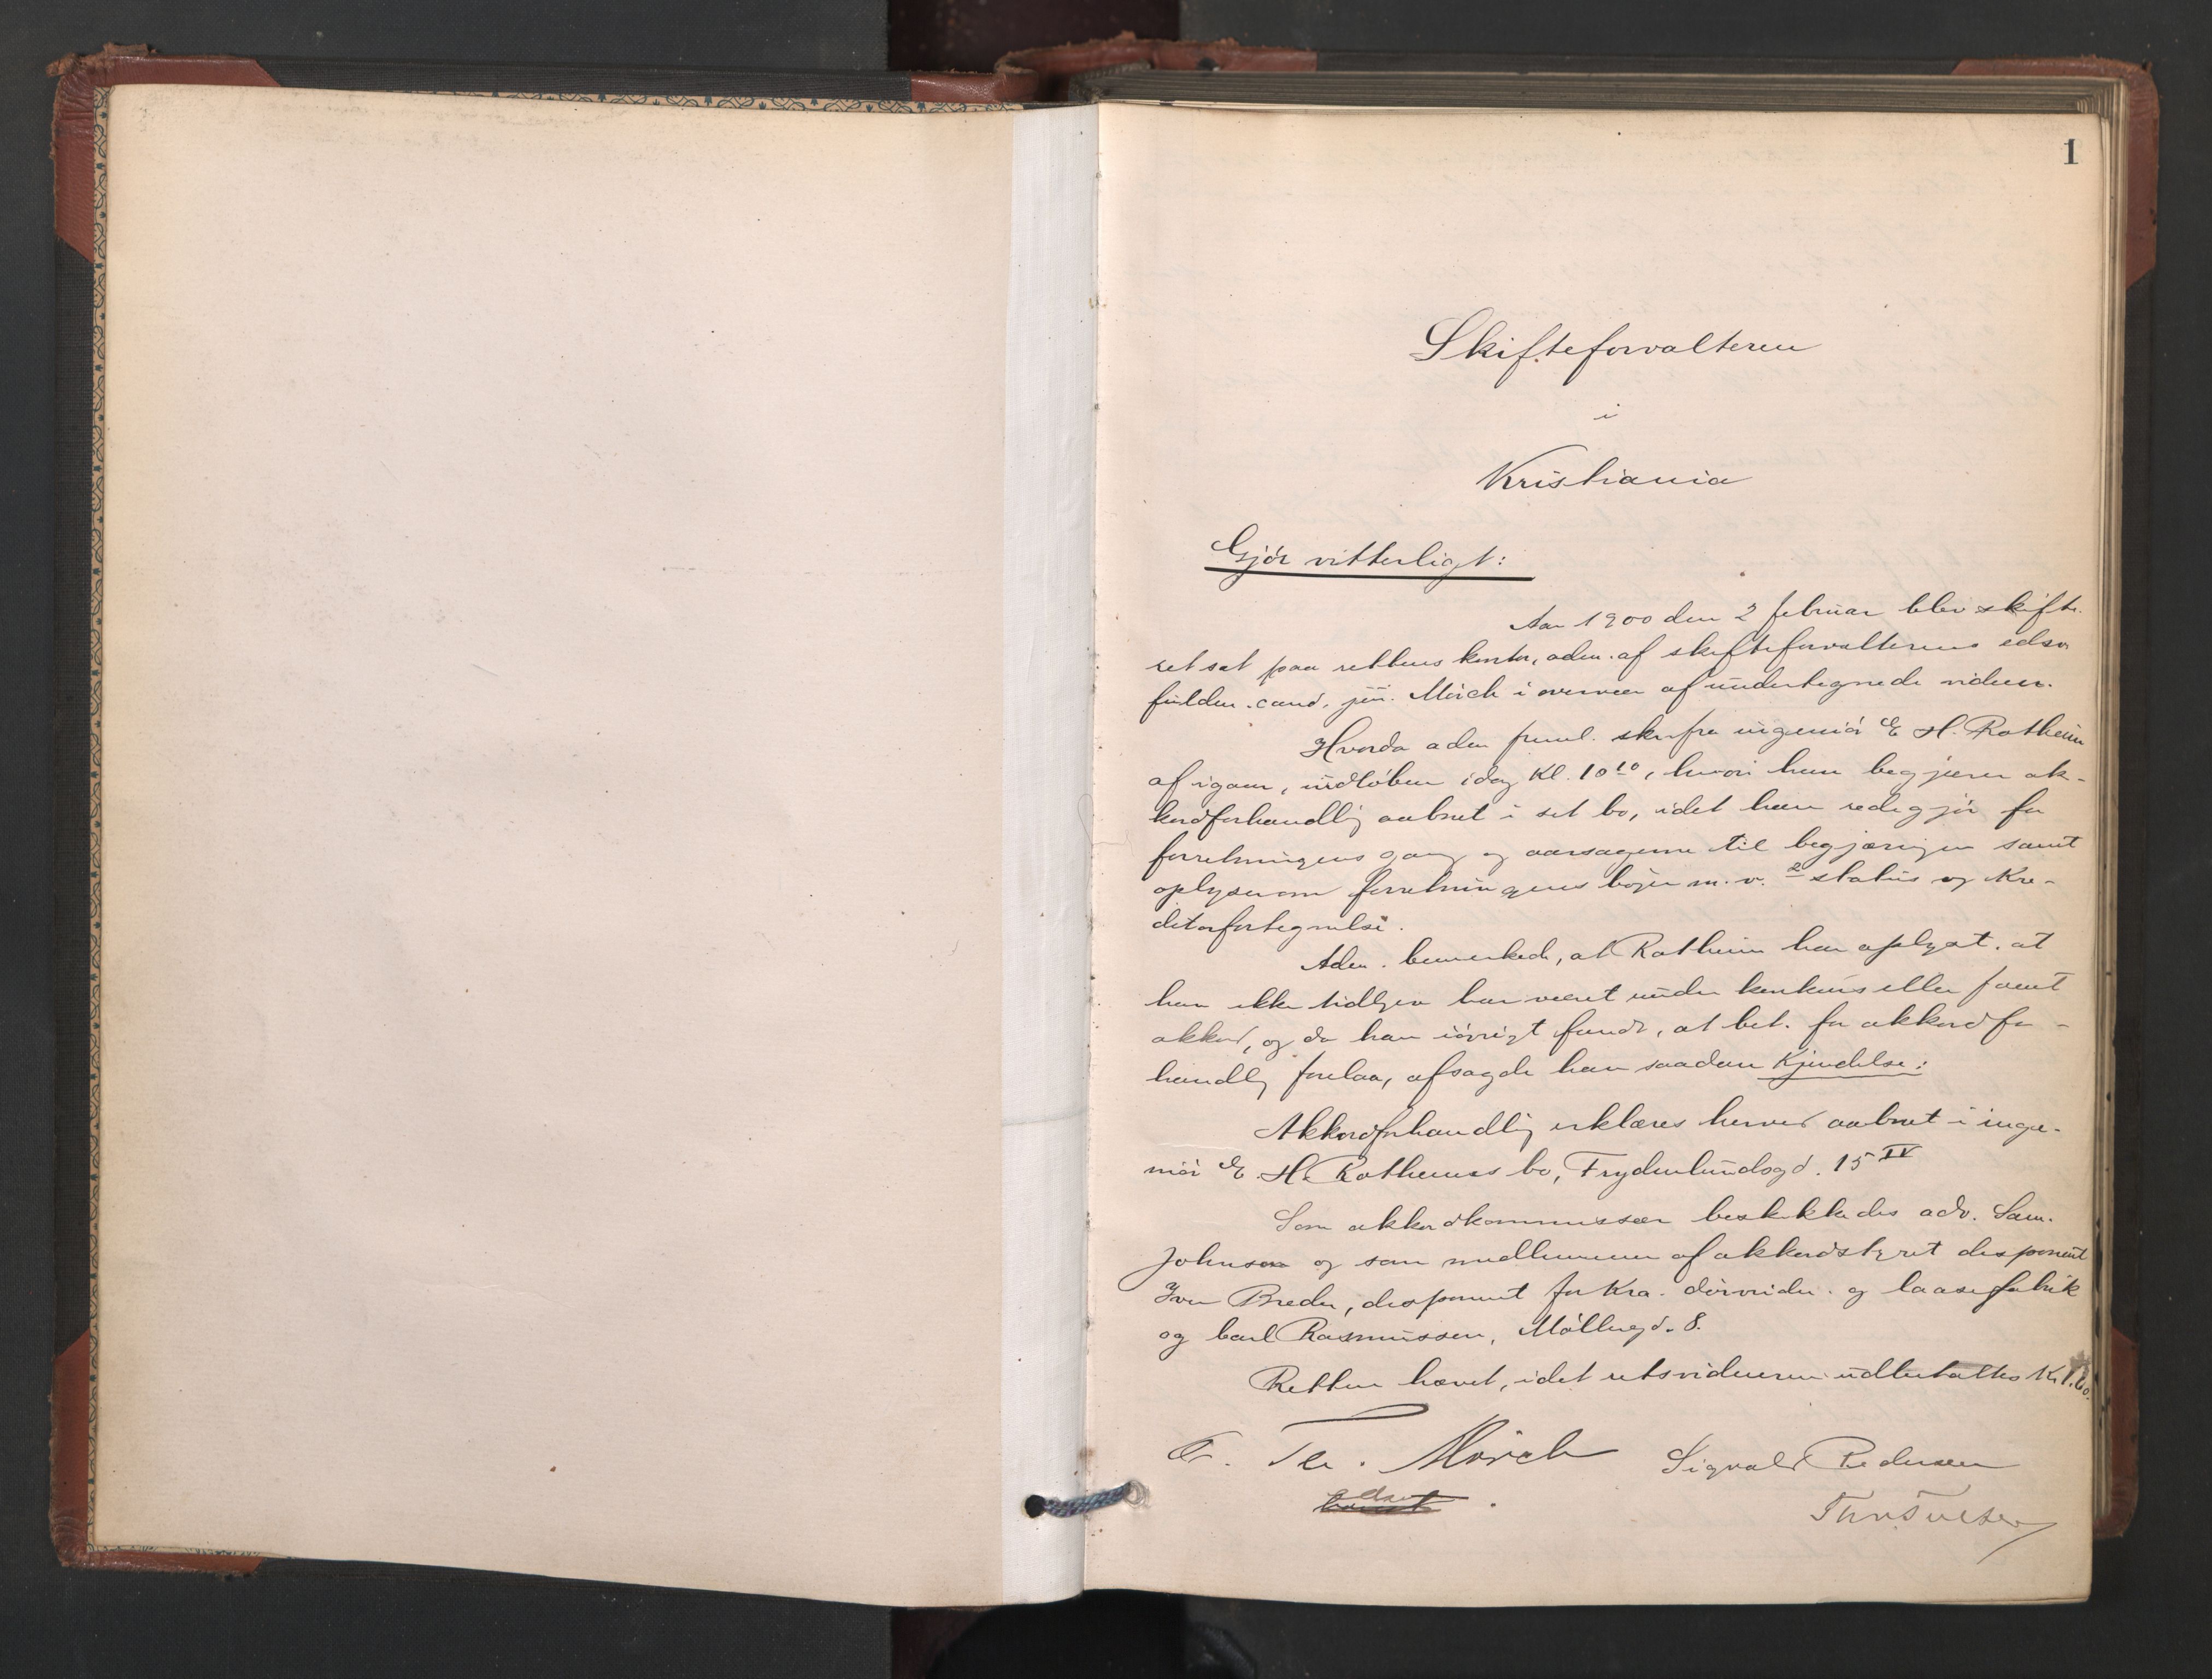 1
Skifteforvalteren
i
Kristiania
Gjör vitterligt:
Aar 1900 den 2 februar blev skifte-
ret sat paa rettens kontor, adm. af skifteforvalterens edsv
fuldm. cand. jur. Mörch i overvær af undertegnede vidner.
Hvorda adm freml. skr fra ingeniör E H. Rotheim
af igaar, indlöben idag Kl. 10 10, hvori han begjærer ak-
kordforhandlig aabnet i sit bo, idet han redegjör for
forretningens gang og aarsagerne til begjæringen samt
oplyser om forretningens böger m. v. 2 status og Kre-
ditorfortegnelse.
Adm. bemerkede, at Rotheim har oplyst, at
han ikke tidligere har været under konkurs eller faaet
akkord, og da han iövrigt fandt, at bet. for akkordfor-
handlig forelaa, afsagde han saadan Kjendelse:
Akkordforhandlig erklæres herved aabnet i inge-
niör E. H. Rotheims bo, Frydenlundsgd. 15 IV
Som akkordkommissær beskikkedes adv. Sam.
Johnson og som medlemmer af akkordstyret disponent
Iver Breder, disponent for Kra. dörvrider. og laasefabrik
og Carl Rasmussen, Möllergd. 8.
Retten hævet, idet retsvidnerne udbetaltes Kr
Fr. Mörch Sigvald Pedersen